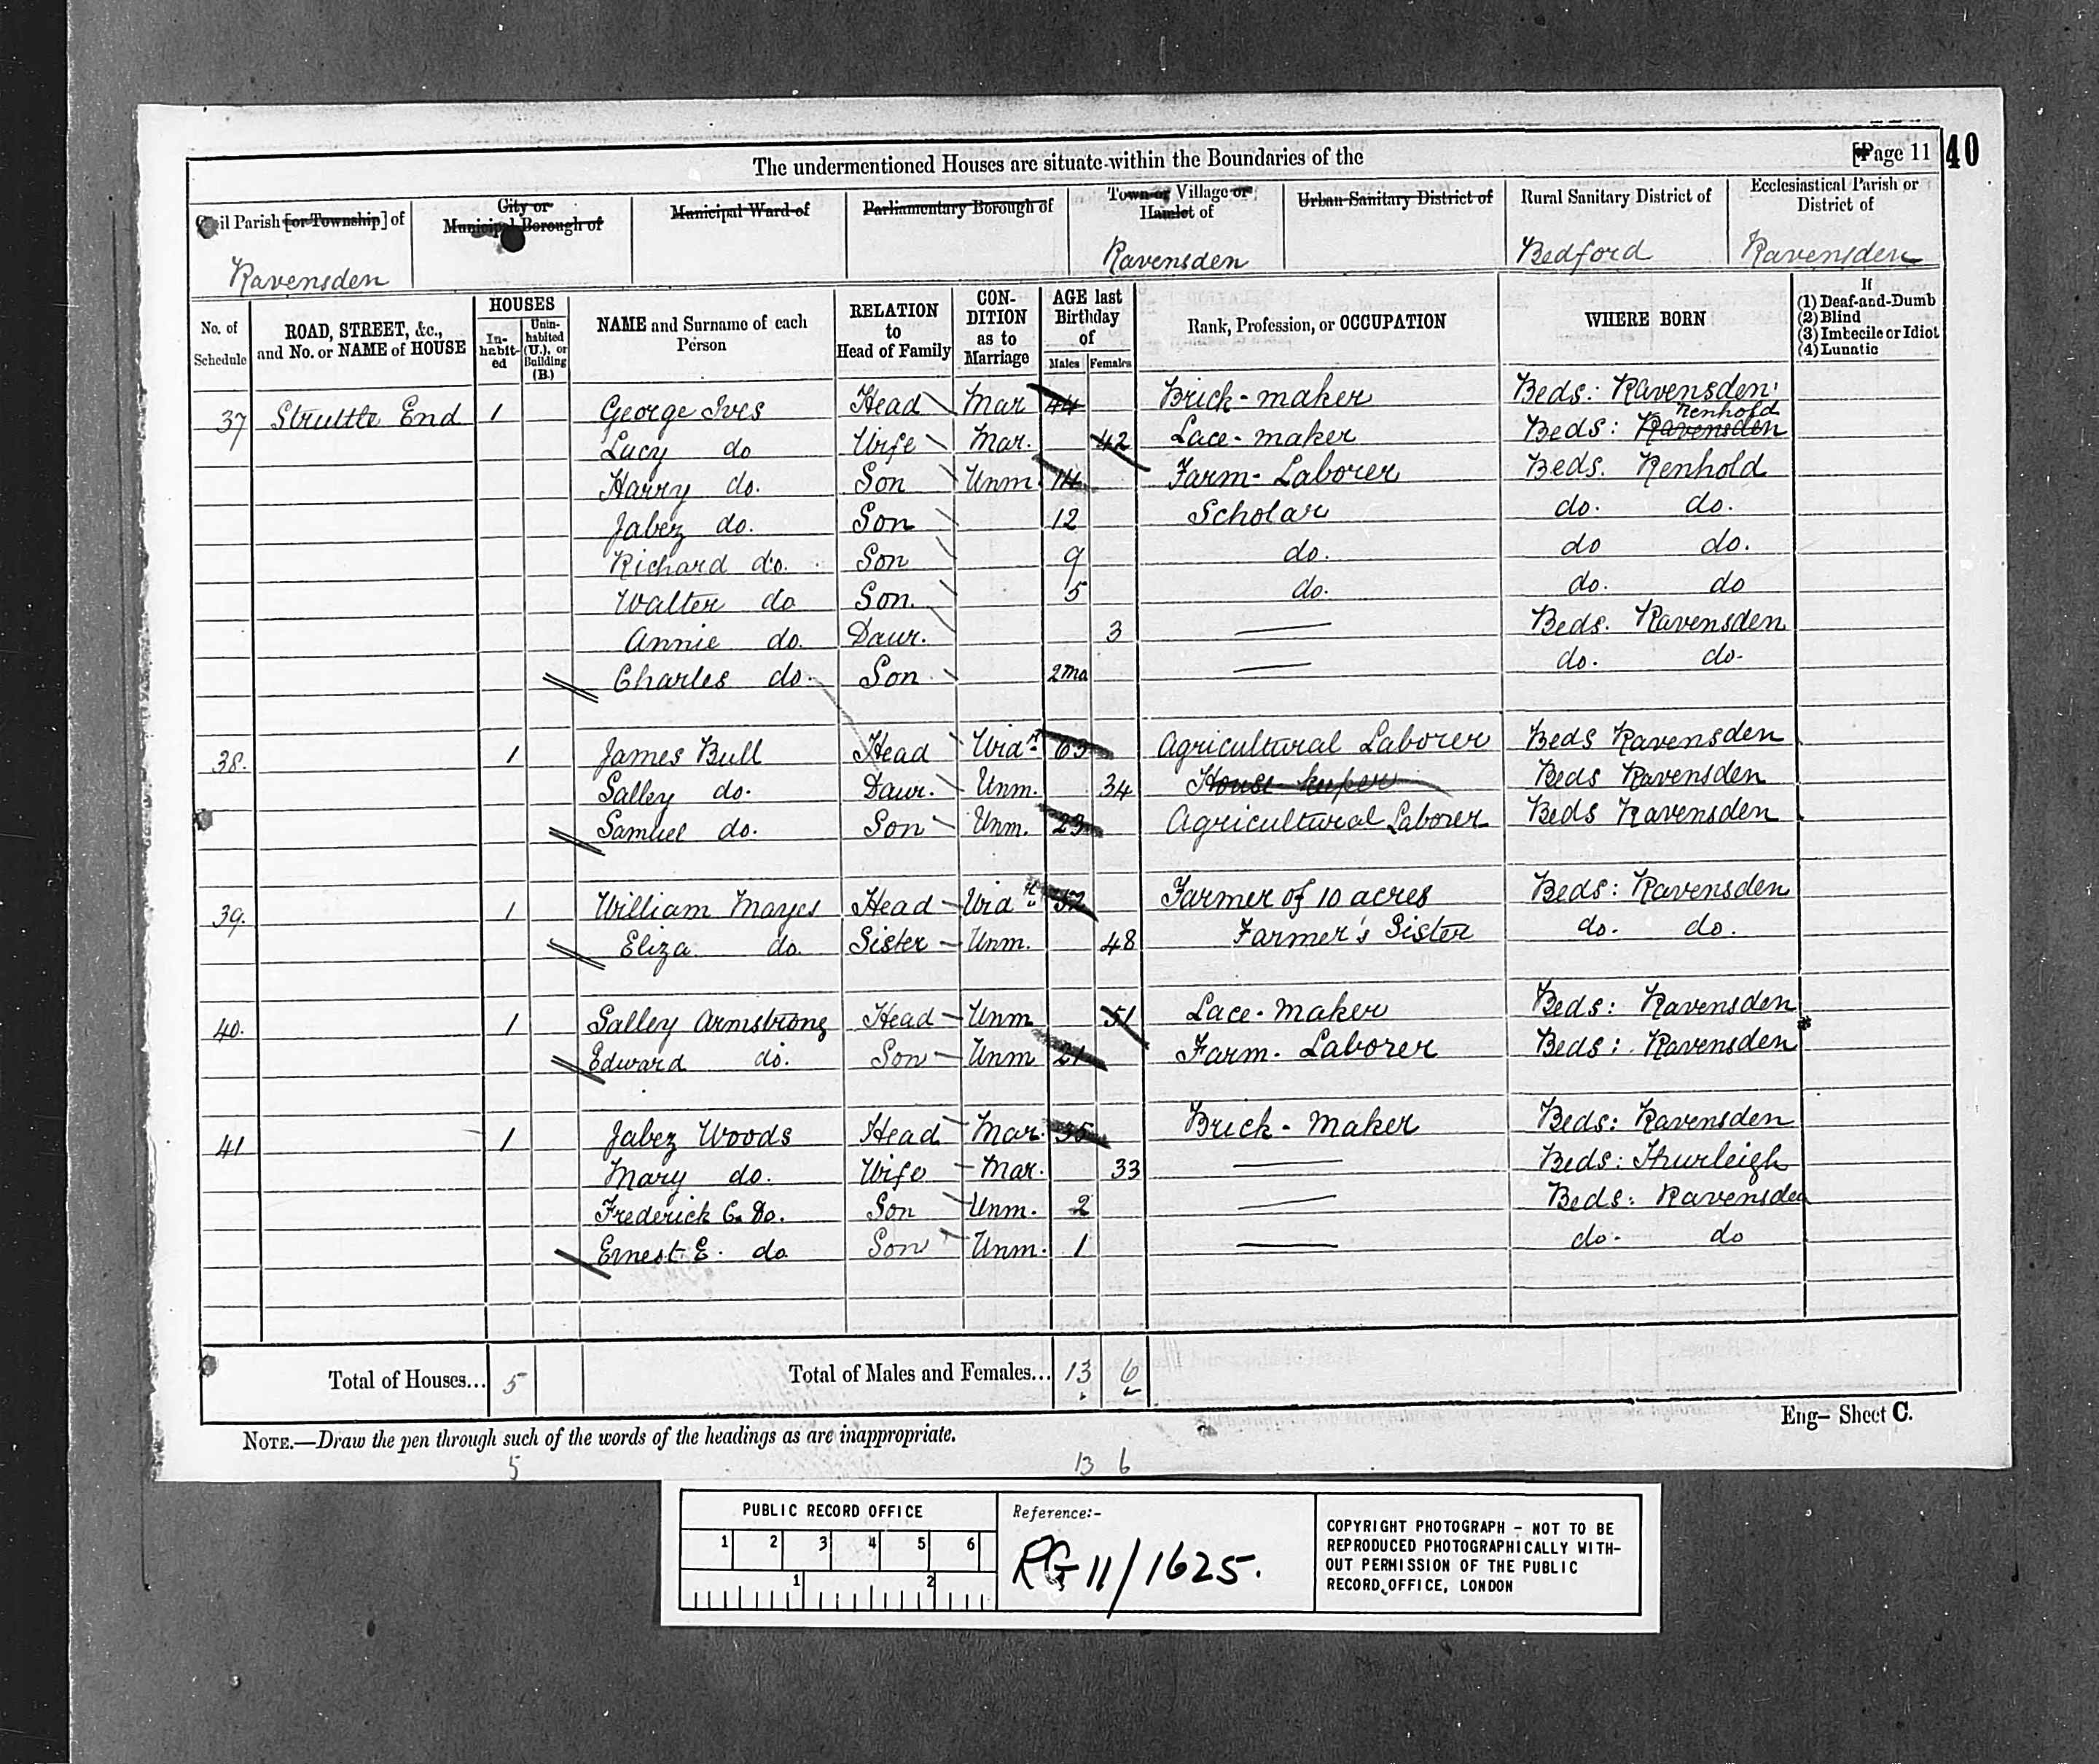 The undermentioned Houses are situate within the Boundaries of the [Page 11 40
Civil Parish [or Township] of City or Municipal Borough of Municipal Ward of Parliamentary Borough of Town or Village or Hamlet of Urban Sanitary District of Rural Sanitary District of Ecclesiastical Parish or District of
Ravensden Ravensden Bedford Ravensden
No. of Schedule ROAD, STREET, &c., and No. or NAME of HOUSE HOUSES In-habit-ed Unin-habited (U.), or Building (B.) NAME and Surname of each Person RELATION to Head of Family CON-DITION as to Marriage AGE last Birthday of Males Females Rank, Profession, or OCCUPATION WHERE BORN If (1) Deaf-and-Dumb (2) Blind (3) Imbecile or Idiot (4) Lunatic
37 Struttle End 1 George Ives Head Mar 44 Brick-maker Beds: Ravensden
Lucy do Wife Mar. 42 Lace-maker Beds: Ravensden Renhold
Harry do. Son Unm. 14 Farm-Laborer Beds. Renhold
Jabez do. Son 12 Scholar do. do.
Richard do. Son 9 do. do do.
Walter do Son. 5 do. do. do
Annie do. Daur. 3 Beds. Ravensden
Charles do. Son 2mo do. do.
38. 1 James Bull Head Widr 63 Agricultural Laborer Beds Ravensden
Salley do. Daur. Unm. 34 House-keeper Beds Ravensden
Samuel do. Son Unm. 23 Agricultural Laborer Beds Ravensden
39. 1 William Mayes Head Widr 52 Farmer of 10 acres Beds: Ravensden
Eliza do. Sister Unm. 48 Farmer's Sister do. do.
40. 1 Salley Armstrong Head Unm 51 Lace-maker Beds: Ravensden
Edward do. Son Unm 21 Farm-Laborer Beds: Ravensden
41 1 Jabez Woods Head Mar. 35 Brick-Maker Beds: Ravensden
Mary do. Wife Mar. 33 Beds: Thurleigh
Frederick C. Do. Son Unm. 2 Beds: Ravensden
Ernest E. do Son Unm. 1 do. do
Total of Houses... 5 Total of Males and Females... 13 6
Eng- Sheet C.
NOTE.—Draw the pen through such of the words of the headings as are inappropriate.
5 13 6
PUBLIC RECORD OFFICE
1 2 3 4 5 6
1 2
Reference:-
RG 11/1625.
COPYRIGHT PHOTOGRAPH - NOT TO BE
REPRODUCED PHOTOGRAPHICALLY WITH-
OUT PERMISSION OF THE PUBLIC
RECORD OFFICE, LONDON